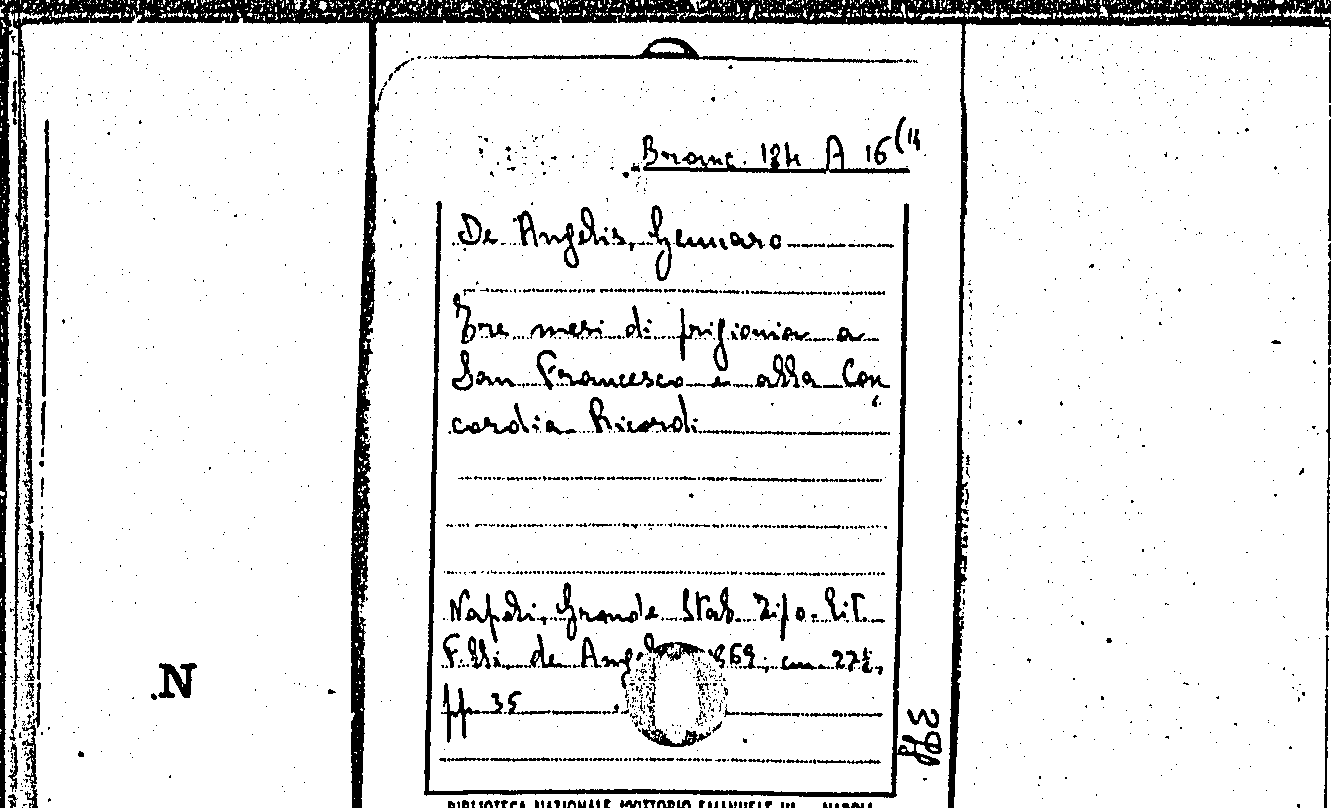 Branc. 184 A 16(14
De Angelis, Gennaro
Tre mesi di prigionia a
San Francesco e alla Con
cordia Ricordi
Napoli, Grande Stab. Tipo-Lit.
F.lli de Angel 869, cm. 27½,
pp. 35
N
BIBLIOTECA NAZIONALE "VITTORIO EMANUELE III" - NAPOLI